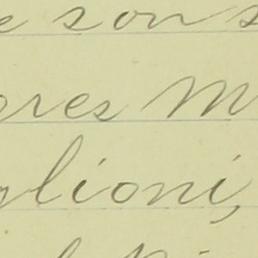 e son s
res M
lioni,